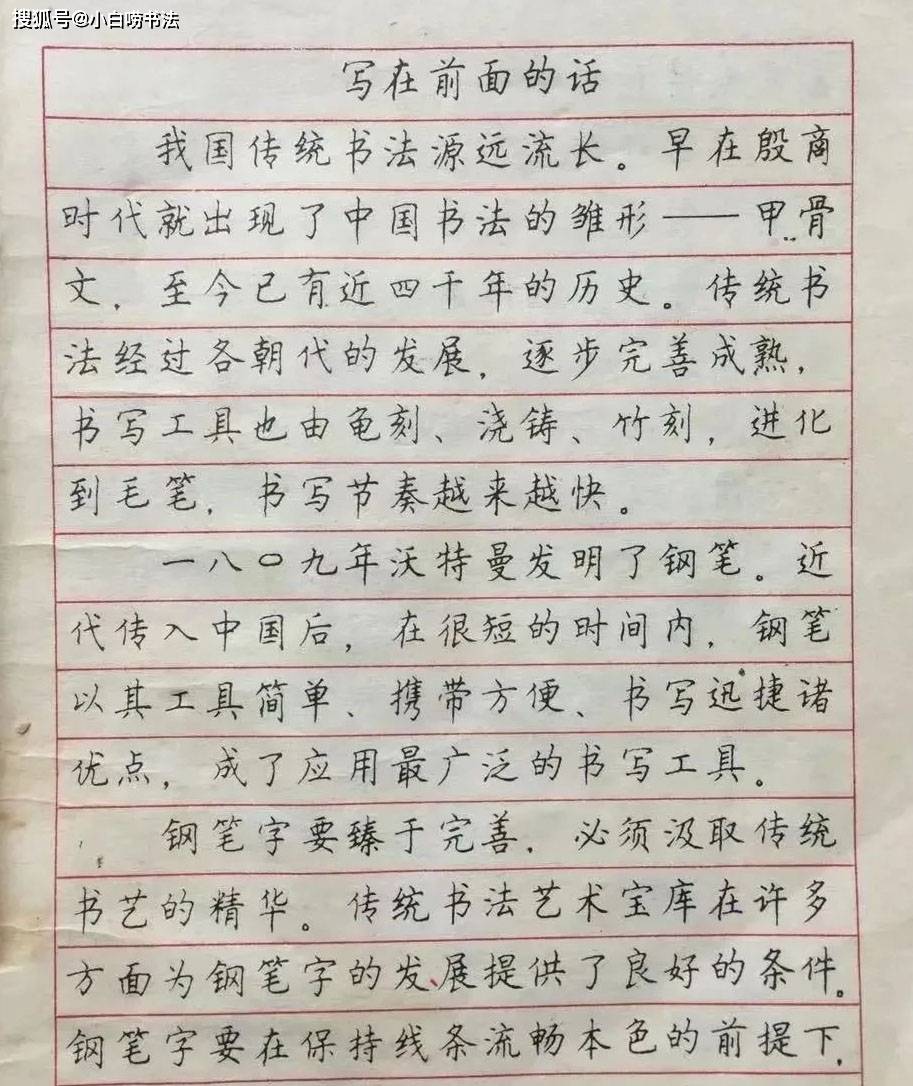 搜狐号@小白唠书法
写在前面的话
我国传统书法源远流长。早在殷商
时代就出现了中国书法的雏形——甲骨
文，至今已有近四千年的历史。传统书
法经过各朝代的发展，逐步完善成熟，
书写工具也由龟刻、浇铸、竹刻，进化
到毛笔，书写节奏越来越快。
一八〇九年沃特曼发明了钢笔。近
代传入中国后，在很短的时间内，钢笔
以其工具简单、携带方便、书写迅捷诸
优点，成了应用最广泛的书写工具。
钢笔字要臻于完善，必须汲取传统
书艺的精华。传统书法艺术宝库在许多
方面为钢笔字的发、展提供了良好的条件。
钢笔字要在保持线条流畅本色的前提下，